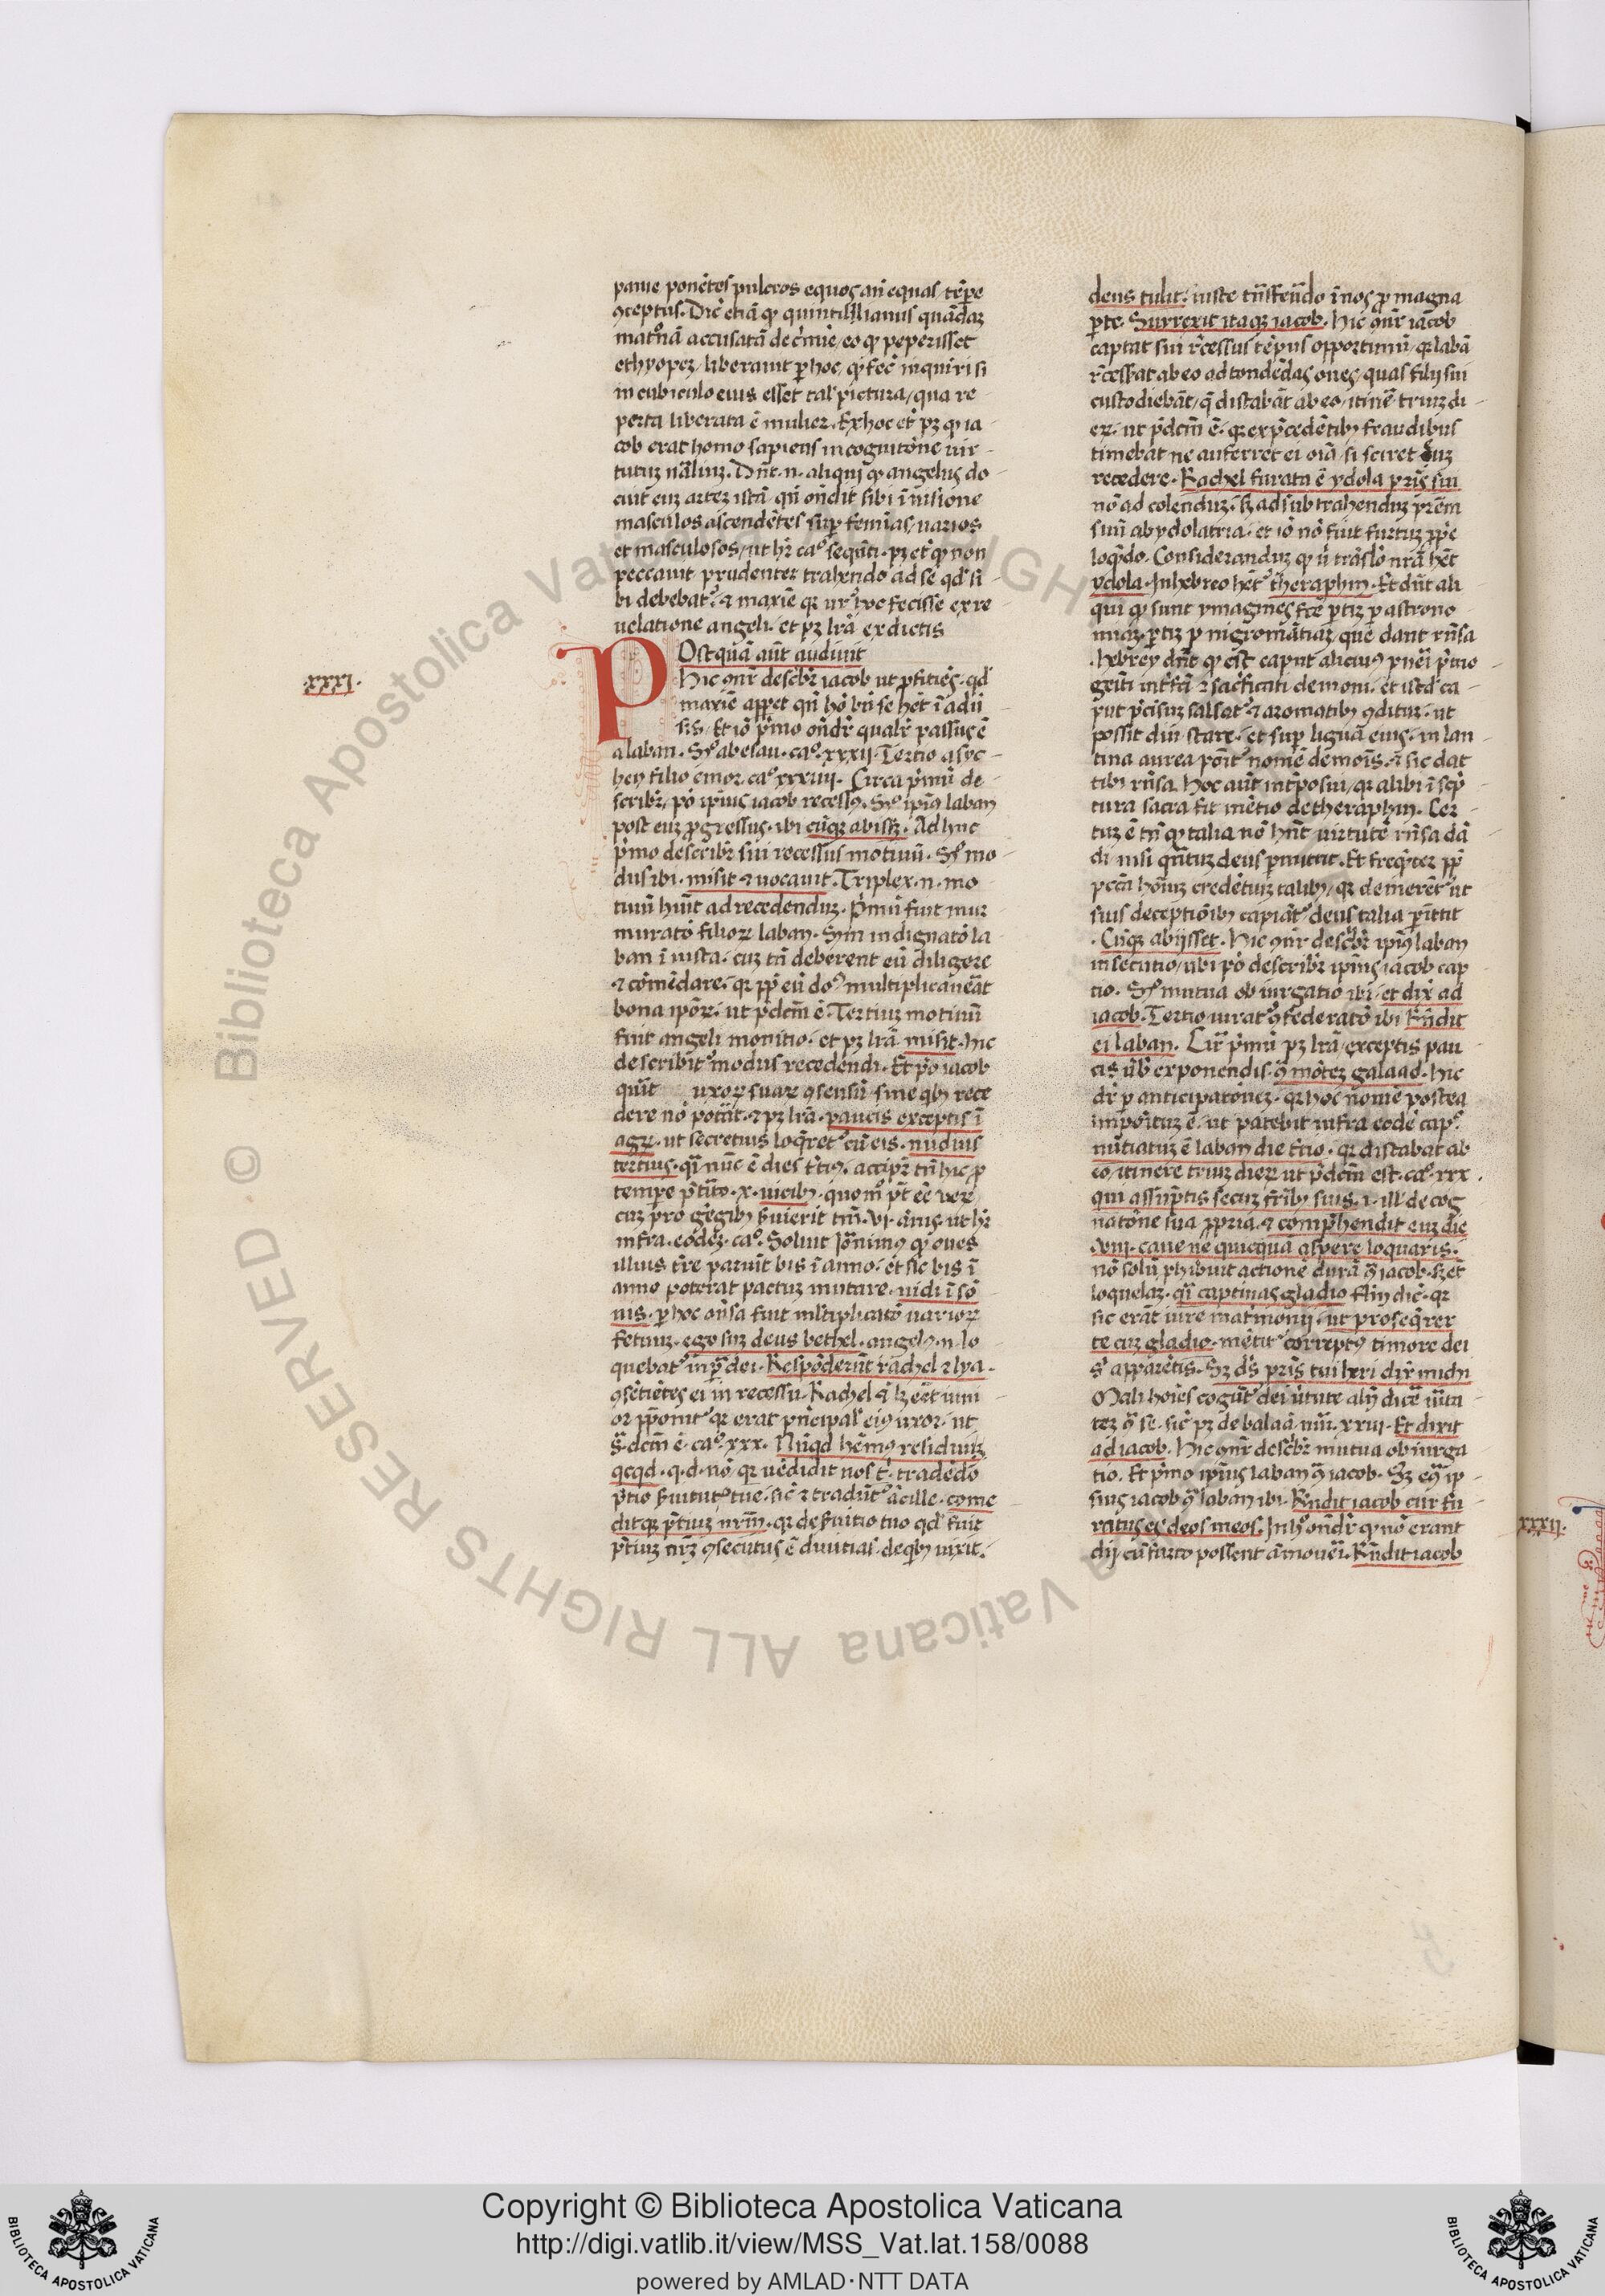 panie ponētes pulcros equos añ equas tēpe
ꝯceptus. Dic̄ etiā ꝙ quintillianus quādaꝫ
mat̓nā accusatā de c̓mīe/ eo ꝙ peperisset
ethyopeꝫ/ liberauit ꝑ hoc/ ꝙ fec̄ inquiri si
in cubiculo eius esset tal̓ pictura/ qua re
perta liberata ē mulier. Ex hoc et̄ pꝫ ꝙ ia
cob erat homo sapiens in cognitōne uir
tutuꝫ nāliuꝫ. Dn̄t .n. aliqui ꝙ angelus do
cuit euꝫ artez istā/ qn̄ on̄dit sibi ī uisione
masculos ascendētes suꝑ feminas/ uarios
et masculosos/ ut hr̄ ca° seqn̄ti. pꝫ et̄ ꝙ non
peccauit prudenter trahendo ad se qd̓ si
bi debebat᷑. ⁊ maxīe qꝛ ur̄ h̓ fecisse ex re
uelatione angeli. et pꝫ lr̄a ex dictis
POstquā aūt audiuit
.xxxI.
Hic ꝯn̄r desc̓br̄ iacob ut ꝓficiēs. qd̓
maxīe apꝑet qn̄ hō bn̄ se het ī adu̓
sis/ Et iō p̓mo on̄dr̄ qualr̄ passus ē
a laban. S° ab esau. ca°. xxxii. Tertio a syc
hen filio emor ca°. xxxiiii. Circa p̓mū de
scribr̄/ p° ip̄ius iacob recessus. S° ip̄ius laban
post euꝫ ꝓgressus. ibi cūqꝫ abissꝫ. Adhuc
p̓mo describr̄ sui recessus motiuū. S° mo
dus ibi. misit ⁊ uocauit. Triplex .n. mo
tiuū hūit ad recedenduꝫ. P̓mū fuit mur
muratō filioꝝ laban. S̓m indignatō la
ban ī iusta. cuꝫ tn̄ deberent eū diligere
⁊ cōmēdare. qꝛ ꝓpt̓ eū dō multiplicauēat
bona ip̄oꝝ. ut p̄dcm̄ ē. Tertiuꝫ motiuū
fuit angeli monitio. et pꝫ lr̄a misit. hic
describit᷑ modus recedendi. Et p̓° iacob
quīt uxoꝝ suaꝝ ꝯsensū sine qbꝫ rece
dere nō potat. ⁊ pꝫ lr̄a. paucis exceptis ī
agꝝ. ut secretius loq̄ret᷑ cū eis. nudius
tertius. qi nūc ē dies t̓ci᷒. accipr̄ tn̄ hic ꝓ
tempe p̄tito. x. uicibꝫ. quom° pt̄ eē ueꝝ
cuꝫ pro gregibꝫ s̓uierit tn̄. vi. ānis. ut hr̄
infra. eodez. ca°. Soluit Ieronimus ꝙ oues
illius t̓re pariūt bis ī anno. et sic bis ī
anno poterat pactuꝫ mutare. uidi ī sō
nis. ꝑ hoc on̄sa fuit multiplicatō uarioꝝ
fetuuꝫ. ego suꝫ deus bethel. angelus .n. lo
quebat᷑ in ꝑa dei. Respōderūt rachel ⁊ lya.
ꝯsētiētes ei in recessu. Rachel ā lꝫ eēt iuni
or p̄ponit᷑ qꝛ erat p̓ncipal̓ ei᷒ uxor. ut
s̄. dcm̄ ē. ca°. xxx. Nūqd hēm᷒ residuiꝫ
qcqd. q. d. nō. qꝛ uēdidit nos t̓. tradēdo
p̄tio s̓uitut᷑ tue. sic̄ ⁊ tradūt᷑ ācille. come
ditqꝫ p̄tiuꝫ nr̄m. qꝛ de s̓uitio tuo qd̓ fuit
p̄tiuꝫ nr̄ꝫ ꝯsecutus ē diuitias. de qbꝫ uixit.
deus tulit. iuste tn̄sferēdo ī nos ꝓ magna
ꝑte. Surrexit itaqꝫ iacob. Hic ꝯn̄r iacob
captat sui r̄cessus tēpus opportunū/ qꝛ labā
r̄cessat ab eo ad tondēdas oues/ quas filij sui
custodiebāt/ q̄ distabāt ab eo/ itinē. triuꝫ di
eꝝ. ut p̄dcm̄ ē. qꝛ ex p̄cedētibꝫ fraudibus
timebat ne auferret ei oīa/ si sciret euꝫ
recedere. Rachel furata ē ydola pr̄is sui
nō ad colenduꝫ. sꝫ ad subtrahenduꝫ pr̄em
suū ab ydolatria. et iō nō fuit furtuꝫ ꝓp̄e
loq̄ndo. Considerandūꝫ ꝙ u̓ trāslō nr̄a hēt
ydola. In hebreo hēt᷑ theraphin. Et dn̄t ali
qui ꝙ sunt ymagines fc̄e ꝑtiꝫ ꝑ astrono
miaꝫ. ꝑtiꝫ ꝑ nigromātiaꝫ/ que dant rn̄sa
.hebrey dn̄t ꝙ est caput alicui᷒ pueri p̓mo
geīti int̓fc̄i ⁊ sac̓ficati demoni. et istd̓ ca
put p̄cisuꝫ salsat᷑. ⁊ aromatibꝫ ꝯditur. ut
possit diu stare. et suꝑ liguā eius. in lan
tina aurea pōit᷑ nomē demōis. ⁊ sic dat
tibi rn̄sa. Hoc aūt int̓posui/ qꝛ alibi ī sc̓p
tura sacra fit mētio de theraphin. Cer
tuꝫ ē tn̄ ꝙ talia nō hn̄t uirtutē rn̄sa dā
di. nisi qn̄tuꝫ deus ꝑmittit. Et freq̄ter ꝓp̄
peca hoīuꝫ credētiuꝫ talibꝫ/ qꝛ demerēt᷑ ut
suis deceptiōibꝫ capiāt᷑ deus talia ꝑmittit
. Cūqꝫ abijsset. Hic ꝯn̄r desc̓br̄ ip̄i᷒ laban
insecutio/ ubi p° describr̄ ip̄ius iacob cap
tio. S° mutua obiurgatio ibi. et dix̄ ad
iacob. Tertio iurat᷑ ꝯfederatō ibi Rn̄dit
ei laban. Circ̄ p̓mū pꝫ lr̄a/ exceptis pau
cis u̓bꝫ exponendis. q̄ mōteꝫ galaad. hic
dr̄ ꝑ anticipatōneꝫ. qꝛ hoc nomē postea
impōituꝫ ē. ut patebit infra eodē cap°.
nūtiatuꝫ ē laban die t̓tio. qꝛ distabat ab
eo/ itinere triuꝫ dieꝝ ut p̄dcm̄ est. ca°. xxx.
qui assūptis secuꝫ fr̄ibꝫ suis. i. ill̓ de cog
natōne sua ꝓpria. ⁊ comp̄hendit euꝫ die
.vii. caue ne quicquā aspere loquaris.
nō solū ꝓhibuit actionē durā q̄ iacob. sꝫ et̄
loquelaꝫ. qi captiuas gladio rn̄ dic̄. qꝛ
sic erāt iure matrimonij. ut proseq̄rer
te cuꝫ gladio. mētit᷑ correpti᷒ timore dei
s° apparētis. Sꝫ ds̄ pr̄is tui heri dix̄ michi
Mali hoīes cogūt᷑ dei u̓tute alij dice u̓ita
teꝫ q̄ se. sic̄ pꝫ de balaā. nūi. xxiii. Et dixit
ad iacob. Hic ꝯn̄r desc̓br̄ mutua obiurga
tio. Et p̓mo ip̄ius laban q̄ iacob. Sꝫ eꝯ ip
sius iacob q̄ laban ibi. Rn̄dit iacob cur fu
ratus es deos meos. In h° on̄dr̄ ꝙ nō erant
dij cū furto possent āmoueri. Rn̄dit iacob
xxxII.
Copyright © Biblioteca Apostolica Vaticana
http://digi.vatlib.it/view/MSS_Vat.lat.158/0088
powered by AMLAD·NTT DATA
© Biblioteca Apostolica Vaticana ALL RIGHTS RESERVED
BIBLIOTECA APOSTOLICA VATICANA
BIBLIOTECA APOSTOLICA VATICANA